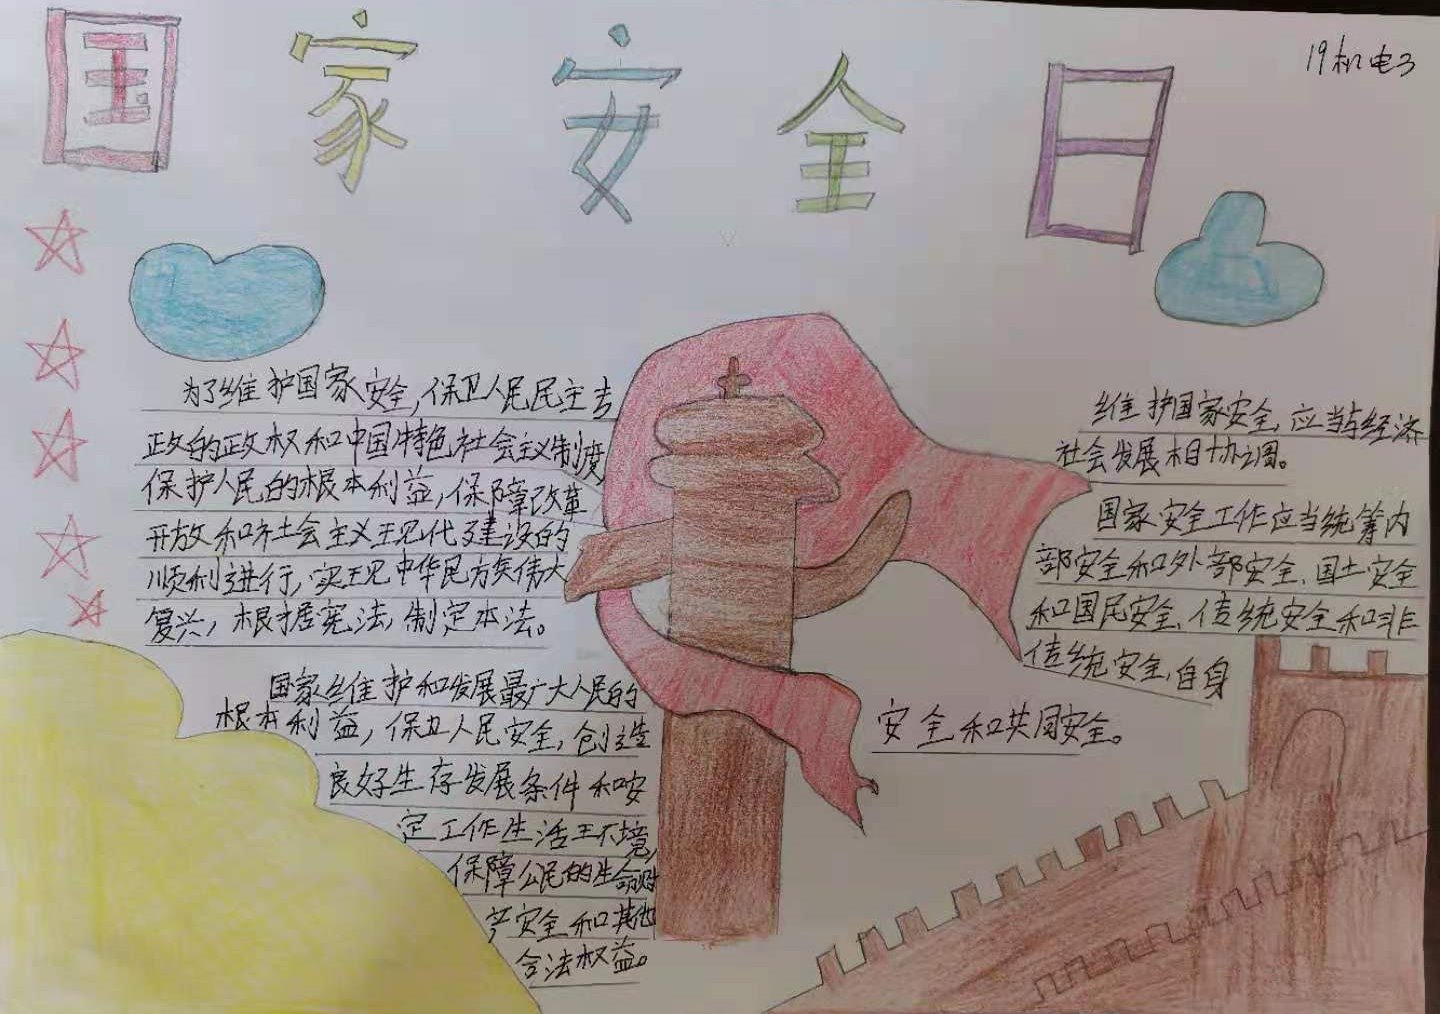 国家安全日
19机电3
为了维护国家安全,保卫人民民主专
政的政权和中国特色社会主义制度
保护人民的根本利益,保障改革
开放和社会主义现代建设的
顺利进行,实现中华民族伟大
复兴,根据宪法,制定本法。
国家维护和发展最广大人民的
根本利益,保卫人民安全,创造
良好生存发展条件和安
定工作生活环境,
保障公民的生命财
产安全和其他
合法权益。
维护国家安全,应当与经济
社会发展相协调。
国家安全工作应当统筹内
部安全和外部安全、国土安全
和国民安全、传统安全和非
传统安全,自身
安全和共同安全。